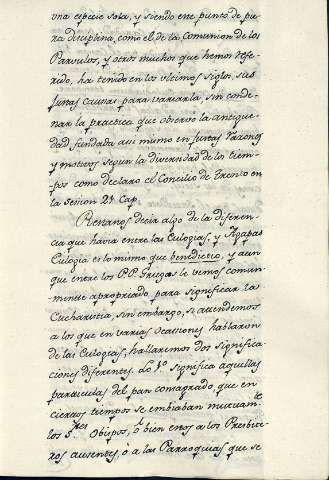 una especie sola, y siendo este punto de pu-
ra disciplina, como el de la Comunion de los
Parvulos, y otros muchos que hemos refe-
rido, ha tenido en los ultimos siglos, sus
justas causas para variarla, sin conde-
nar la practica que observo la antigue-
dad fundada asi mismo en justas razones
y motivos segun la diversidad de los tiem-
pos como declaro el Concilio de Trento en
la sesion 21 Cap.
Restanos decir algo de la diferen-
cia que havia entre las Eulogias, y Agapas
Eulogia es lo mismo que benedictio, y aun
que entre los P.P. Griegos le vemos comun-
mente apropriado, para significar la
Eucharistia, sin embargo, si atendemos
a los que en varias ocasiones hablaron
de las Eulogias, hallaremos dos significa-
ciones diferentes. Lo 1º significa aquellas
particulas del pan consagrado, que en
ciertos tiempos se embiaban mutuam.te
los S.res Obispos, ò bien estos a los Presbite-
ros ausentes, ò a las Parroquias que se